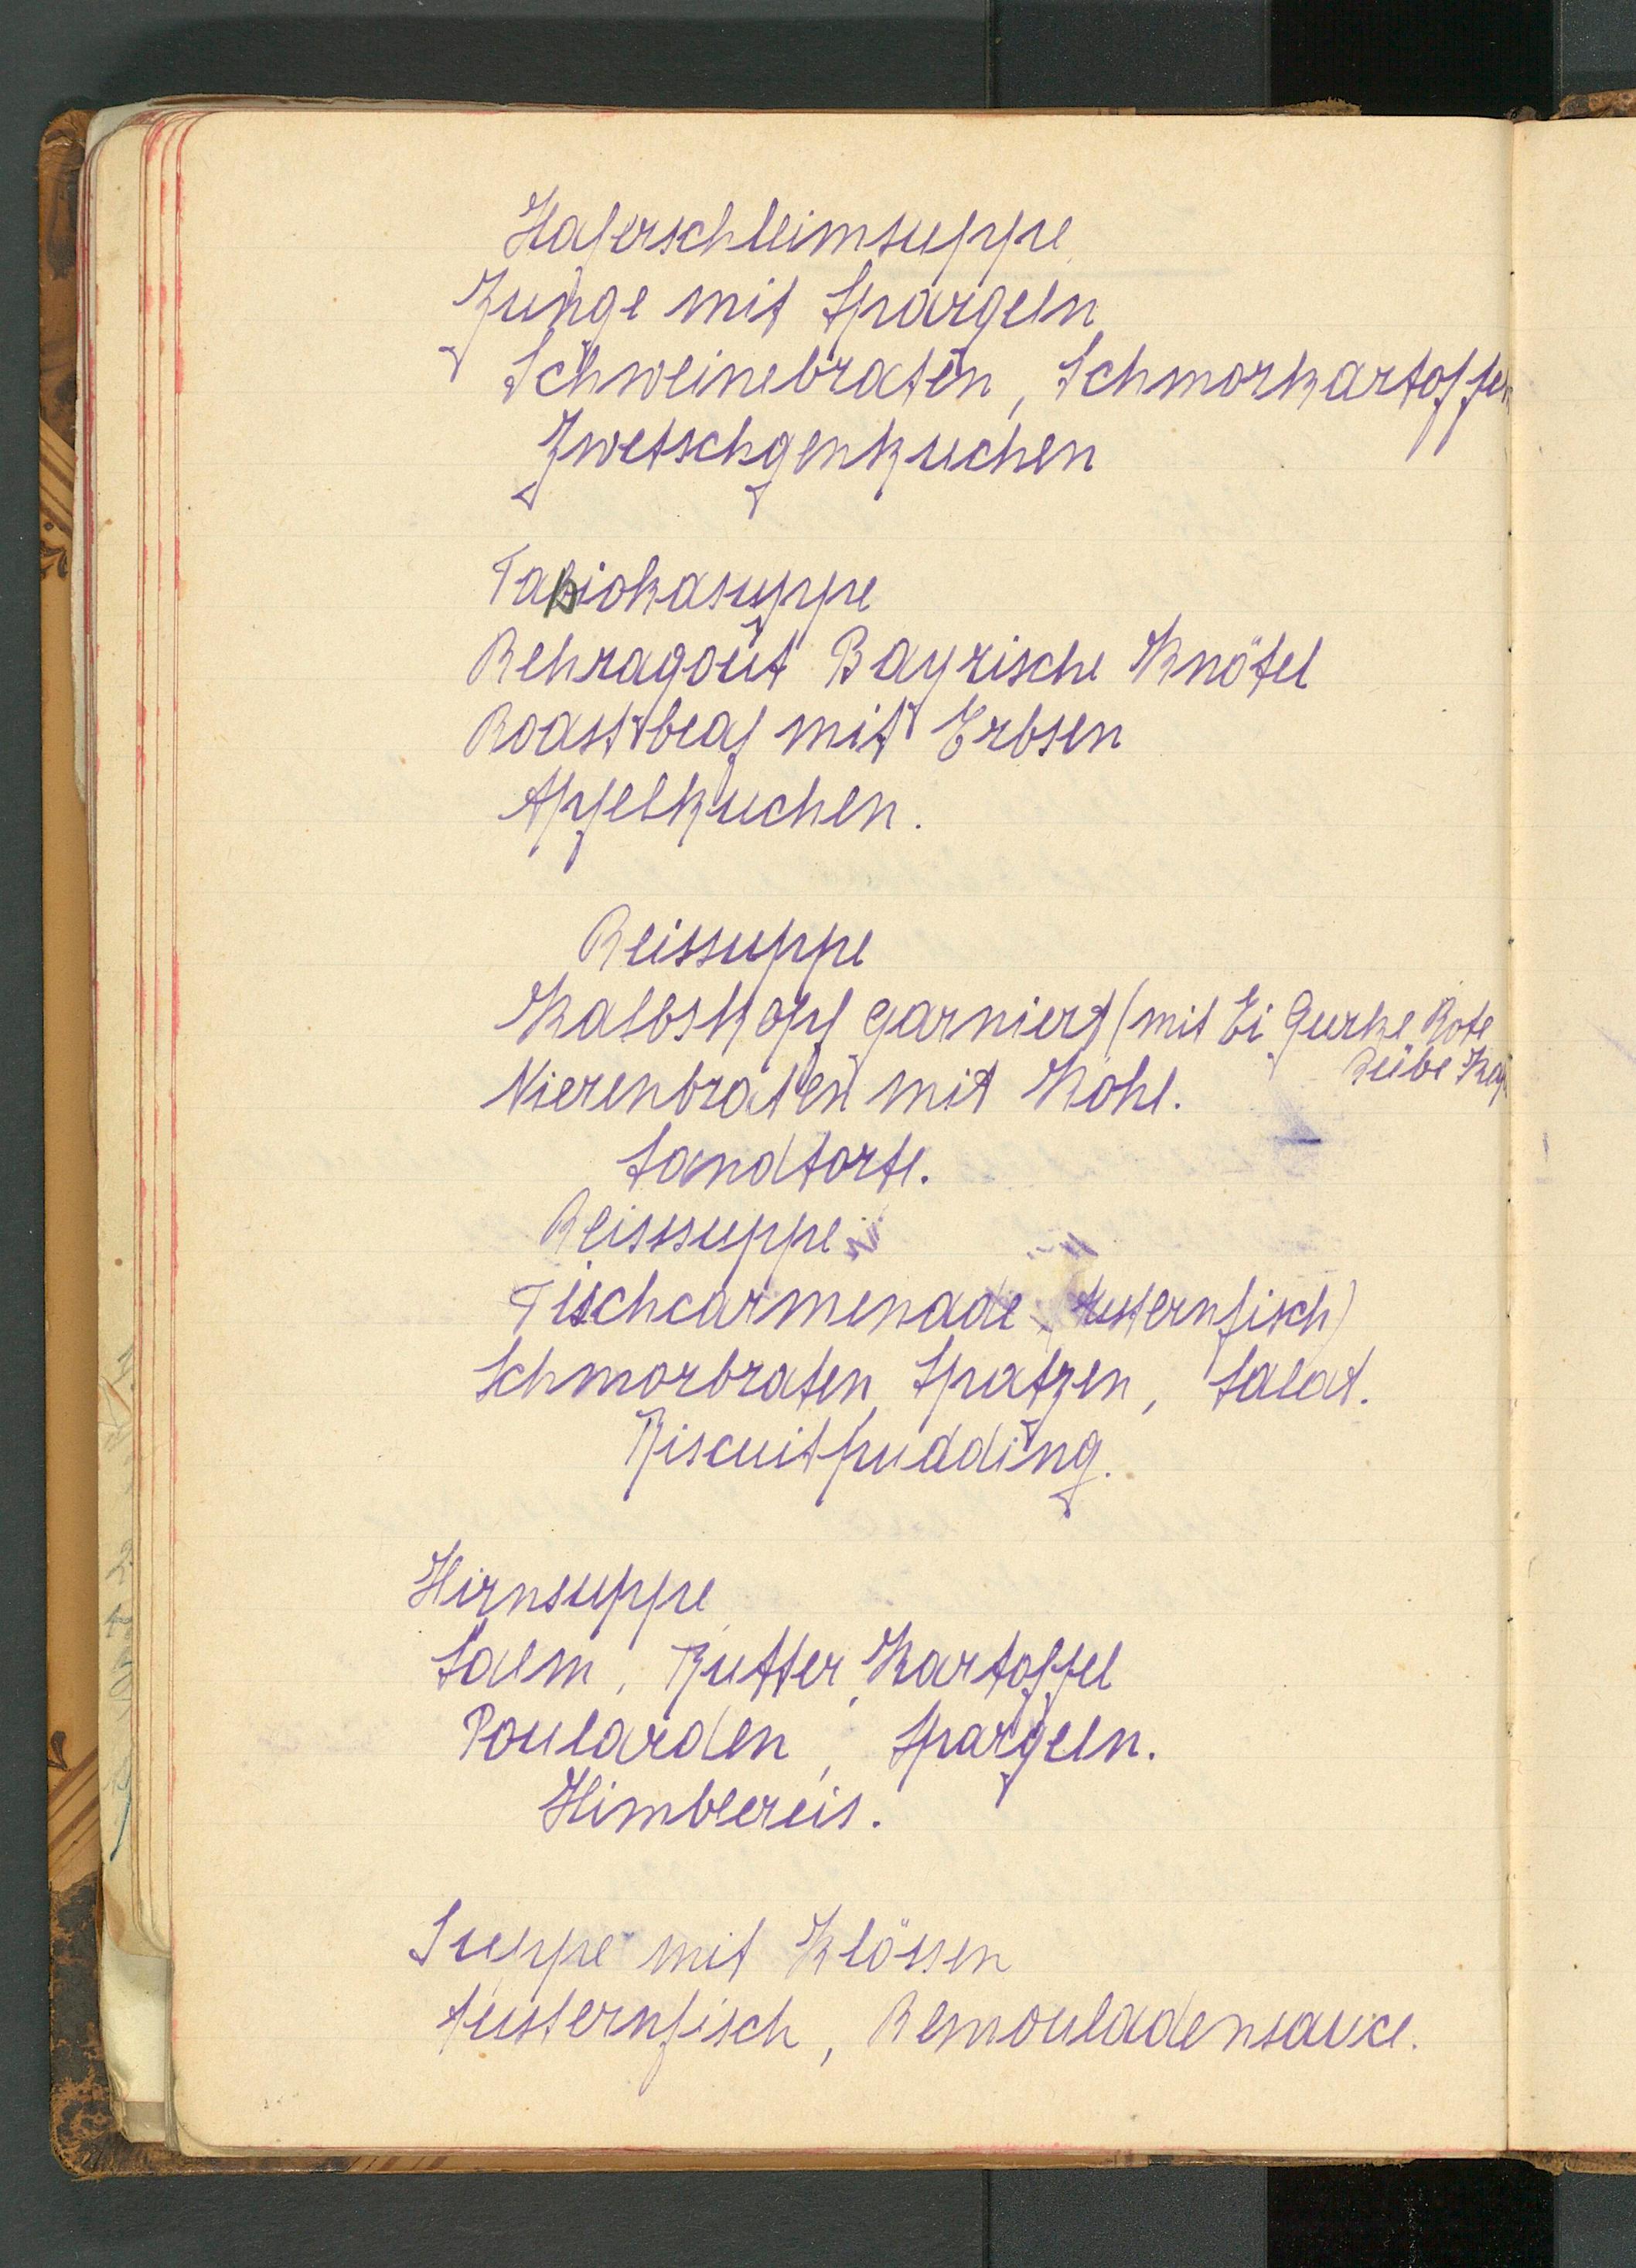 Haferschleimsuppe
Zunge mit Spargeln
Schweinebraten, Schmorkartoffeln
Zwetschgenkuchen
Tapiokasuppe
Rehragout Bayrische Knötel
Roastbeaf mit Erbsen
Apfelkuchen.
Reissuppe
Kalbskopf garniert (mit Ei Gurke Rote
Rübe
Nierenbraten mit Kohl.
Sandtorte.
Reissuppe
Fischcarmenade Austernfisch)
Schmorbraten, Spatzen, Salat.
Biscuitpudding.
Hirnsuppe
Salm, Butter, Kartoffel
Poularden, Spargeln.
Himbereis.
Suppe mit Klössen
Austernfisch, Remouladensauce.